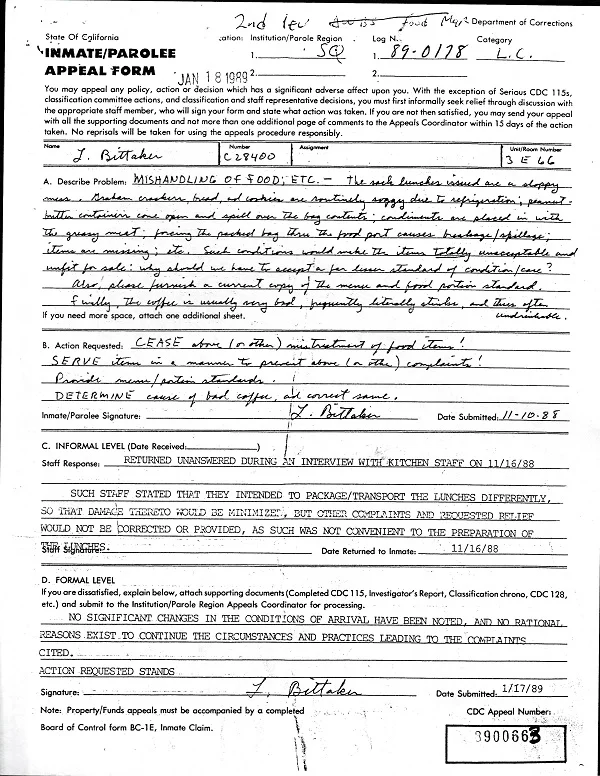 2nd lev Food Mgr Department of Corrections
State Of California
Location: Institution/Parole Region Log No. Category
INMATE/PAROLEE
1. SQ 1. 89-0178 L.C.
APPEAL FORM
JAN 18 1989 2. 2.
You may appeal any policy, action or decision which has a significant adverse affect upon you. With the exception of Serious CDC 115s,
classification committee actions, and classification and staff representative decisions, you must first informally seek relief through discussion with
the appropriate staff member, who will sign your form and state what action was taken. If you are not then satisfied, you may send your appeal
with all the supporting documents and not more than one additional page of comments to the Appeals Coordinator within 15 days of the action
taken. No reprisals will be taken for using the appeals procedure responsibly.
Name Number Assignment Unit/Room Number
L. Bittaker C28400 3 E 66
A. Describe Problem: MISHANDLING OF FOOD, ETC. – The sack lunches issued are a sloppy
mess. Graham crackers, bread, ad cookies are routinely soggy due to refrigeration; peanut-
butter containers come open and spill over the bag contents; condiments are placed in with
the greasy meat; forcing the packed bag thru the food port causes breakage/spillage;
items are missing; etc. Such conditions would make the items totally unacceptable and
unfit for sale: why should we have to accept a far lesser standard of condition/care?
Also, please furnish a current copy of the menu and food portion standard.
Finally, the coffee is usually very bad, frequently literally stinks, and thus often
If you need more space, attach one additional sheet. undrinkable.
B. Action Requested: CEASE above (or other) mistreatment of food items!
SERVE items in a manner to prevent above (or other) complaints!
Provide menu/portion standards.
DETERMINE cause of bad coffee, ad correct same.
Inmate/Parolee Signature: L. Bittaker Date Submitted: 11-10-88
C. INFORMAL LEVEL (Date Received: )
Staff Response: RETURNED UNANSWERED DURING AN INTERVIEW WITH KITCHEN STAFF ON 11/16/88
SUCH STAFF STATED THAT THEY INTENDED TO PACKAGE/TRANSPORT THE LUNCHES DIFFERENTLY,
SO THAT DAMAGE THERETO WOULD BE MINIMIZED, BUT OTHER COMPLAINTS AND REQUESTED RELIEF
WOULD NOT BE CORRECTED OR PROVIDED, AS SUCH WAS NOT CONVENIENT TO THE PREPARATION OF
THE LUNCHES.
Staff Signature: Date Returned to Inmate: 11/16/88
D. FORMAL LEVEL
If you are dissatisfied, explain below, attach supporting documents (Completed CDC 115, Investigator's Report, Classification chrono, CDC 128,
etc.) and submit to the Institution/Parole Region Appeals Coordinator for processing.
NO SIGNIFICANT CHANGES IN THE CONDITIONS OF ARRIVAL HAVE BEEN NOTED, AND NO RATIONAL
REASONS EXIST TO CONTINUE THE CIRCUMSTANCES AND PRACTICES LEADING TO THE COMPLAINTS
CITED.
ACTION REQUESTED STANDS
Signature: L. Bittaker Date Submitted: 1/17/89
Note: Property/Funds appeals must be accompanied by a completed CDC Appeal Number:
Board of Control form BC-1E, Inmate Claim.
8900663